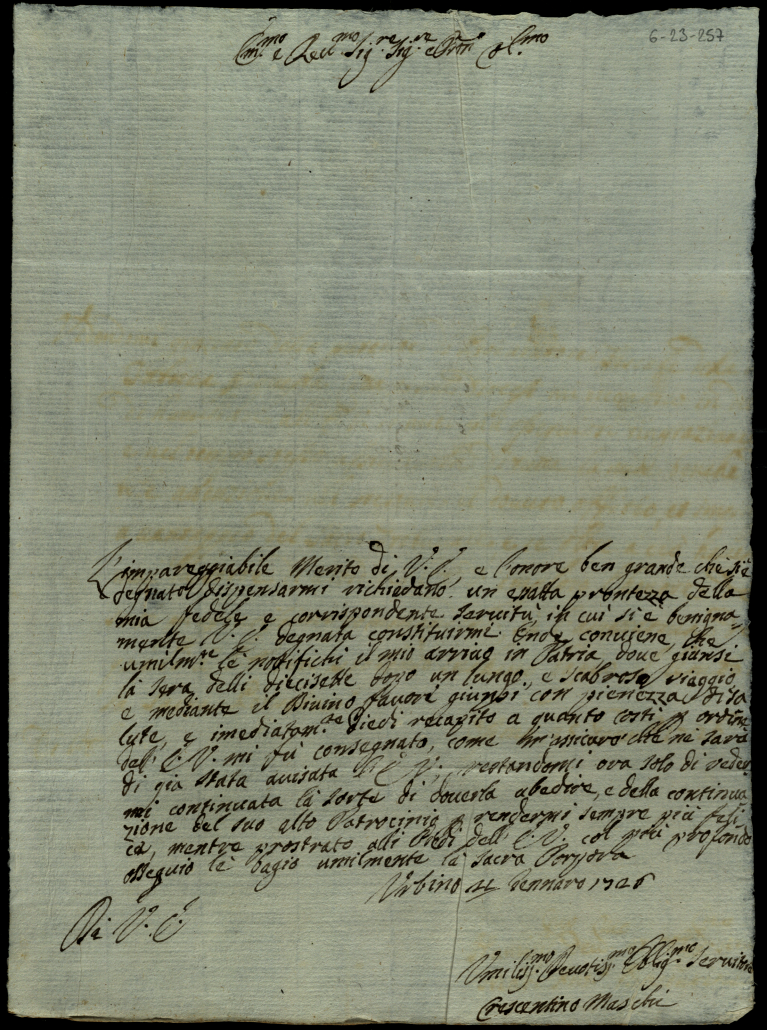 6-23-257
Em.mo e Rev.mo Sig.re Sig.re e Pron.e Col.mo
L'impareggiabile Merito di V. E. e l'onore ben grande che si è
degnato dispensarmi richiedano un esatta prontezza della
mia fedele e corrispondente servitù in cui si è benigna=
mente V. E. degnata constituirmi. Onde conviene, che
umilm.te le notifichi il mio arrivo in Patria, dove giunsi
la sera delli diecisette dopo un lungo, e scabroso viaggio
e mediante il Divino favore giunsi con pienezza di sa
lute, e imediatam.te diedi recapito a quanto costì p ordine
dell' E. V. mi fù consegnato, come m'assicuro che ne sarà
di già stata avisata l' E. V., restandomi ora solo di veder
mi continuata la sorte di doverla abedire, e della continua
zione del suo alto Patrocinio p rendermi sempre più feli
ce, mentre prostrato alli Piedi dell' E. V. col più profondo
ossequio le bagio umilmente la Sacra Porpora
Urbino Gennaro 1726
Di V. E.
Umiliss.mo Devotiss.mo Oblig.mo Servitore
Crescentino Maschi